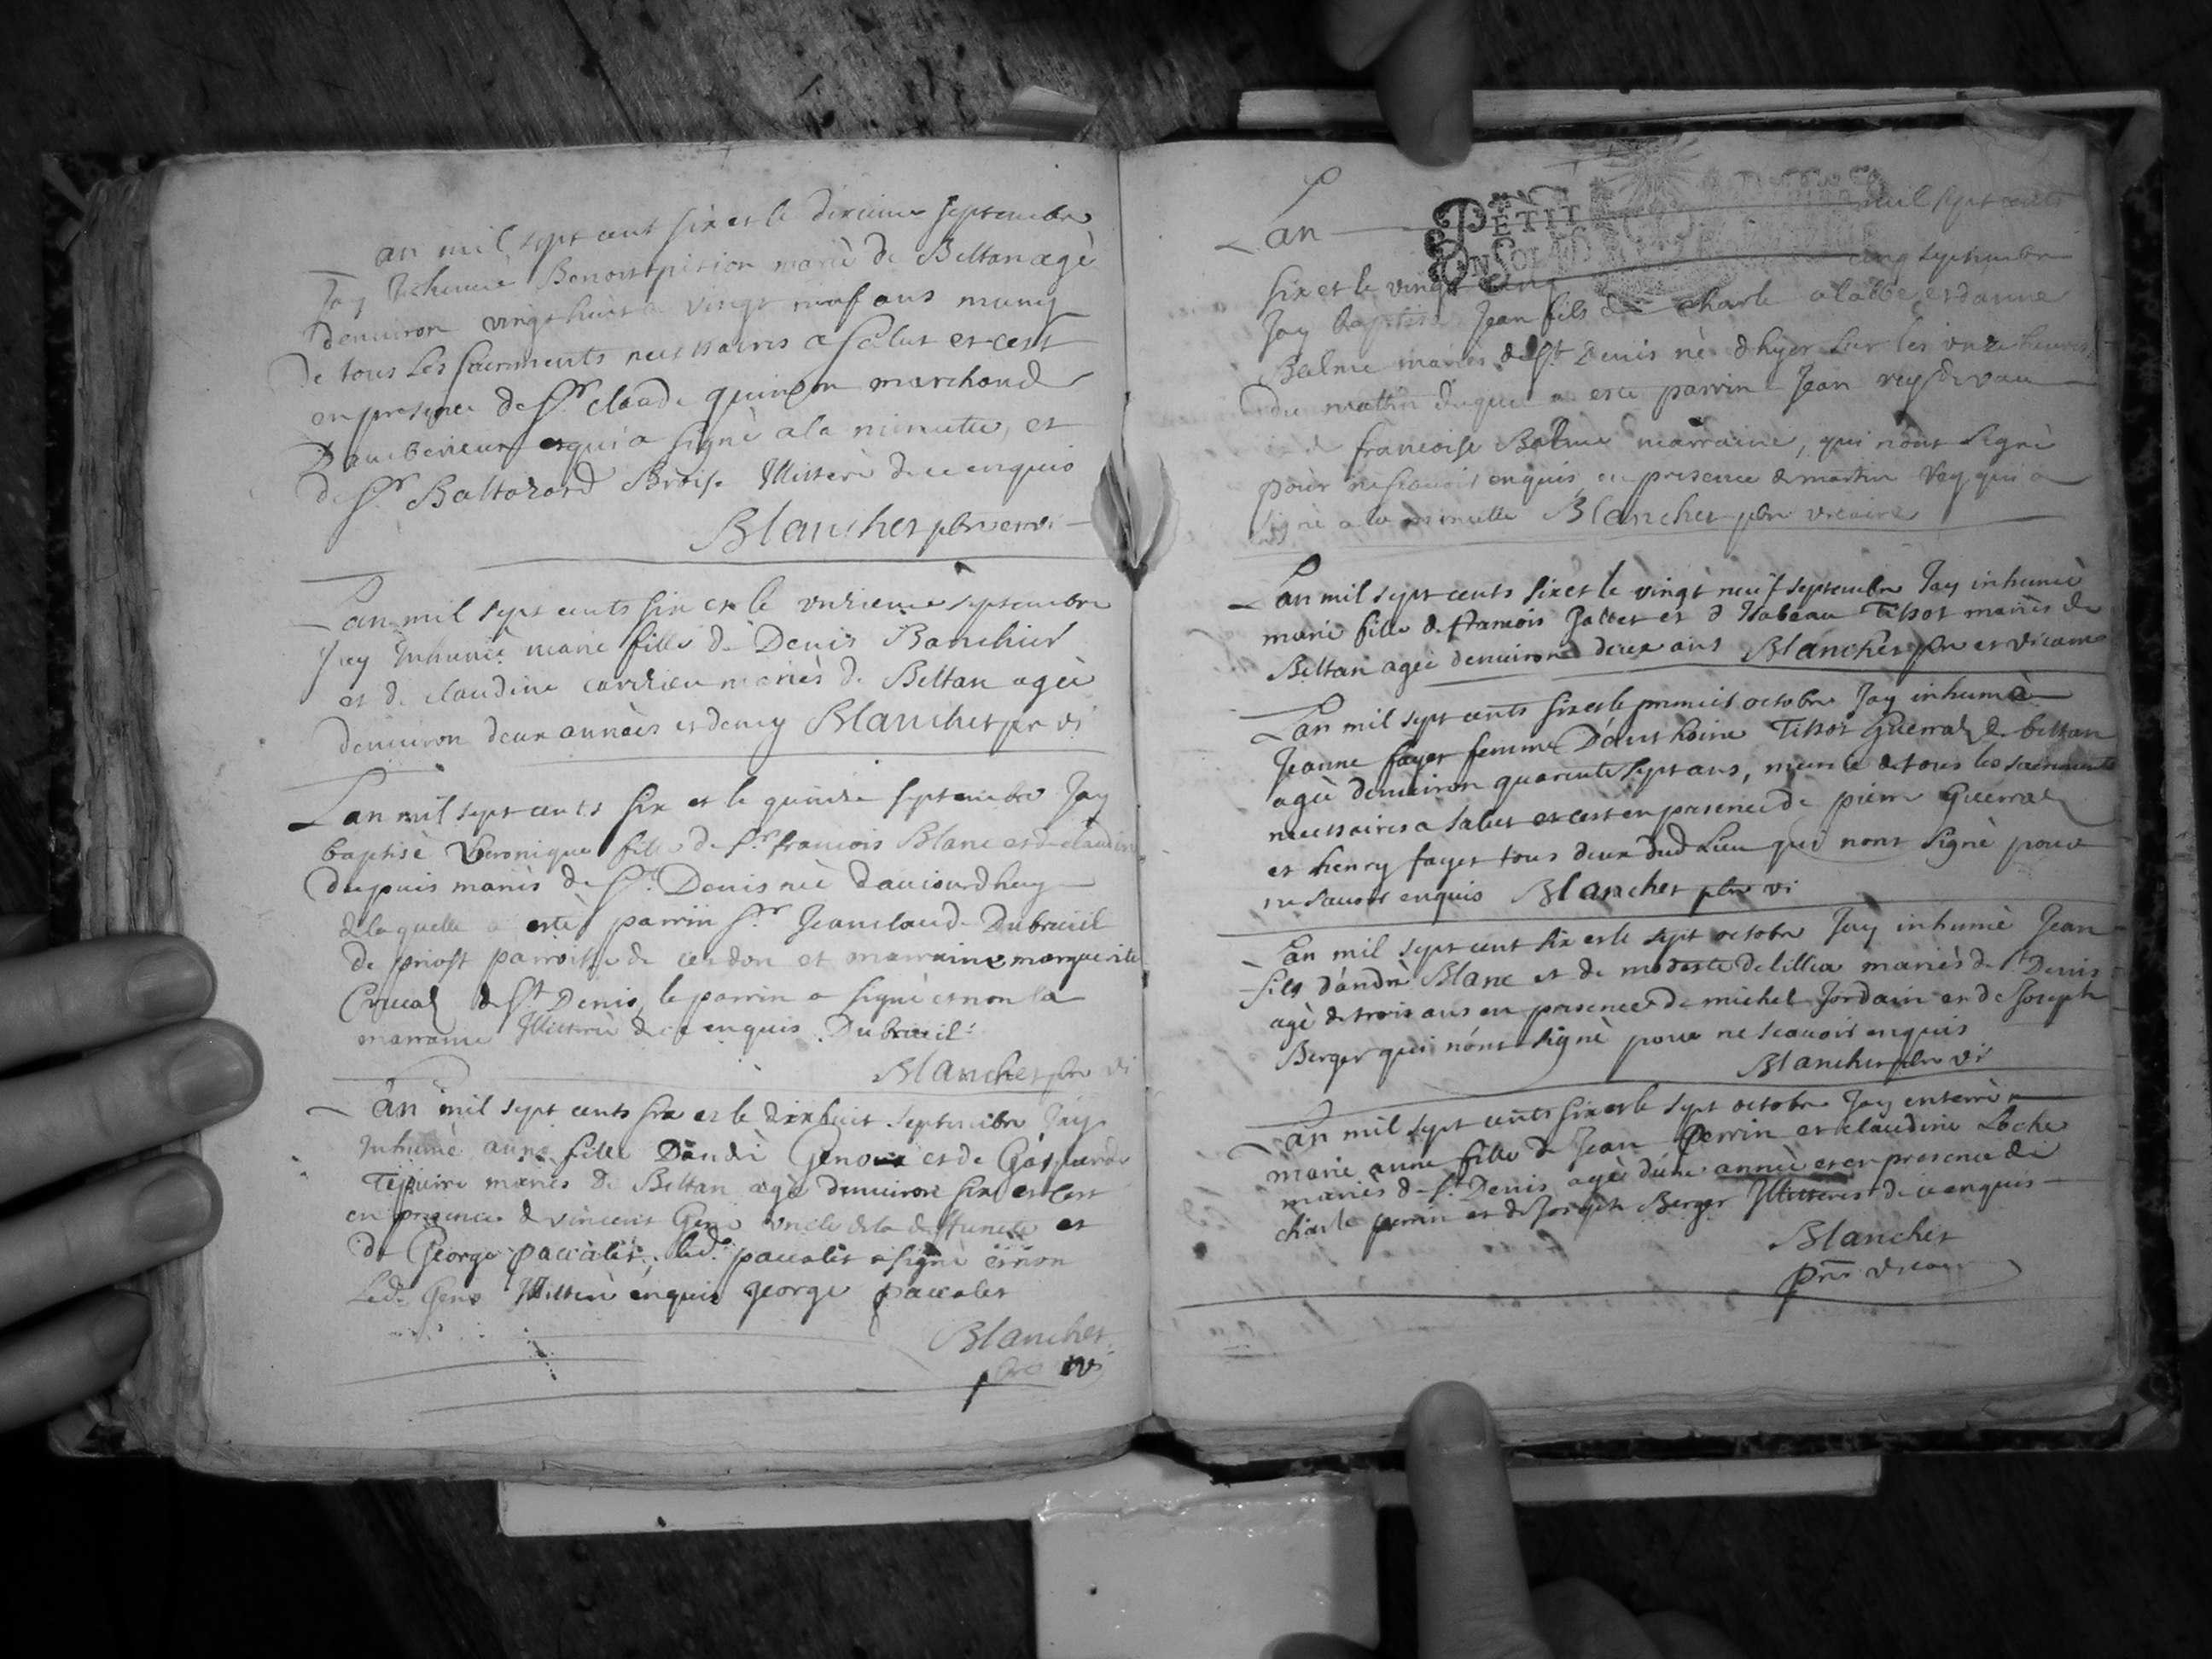 an mil sept cent six et le dixieme septembre
Jay Inhumé Benoist pition marié de Bettan agé
denuiron vingt huit a vingt neuf ans muny
De tous Les sacrements necessaires a salut et cest
en presence de Sr. claude quinson marchand
D'amberieux et qui a signé a la minutte, et
de Sr Baltazard Brois Illitere de ce enquis
Blanchet pbre et vi
Lan mil sept cents six et le unzieme septembre
Jay Inhumé marie fille de Denis Bonchier
et de claudine mariés de Bettan agée
denuiron deux années et demy Blanchet pr vi
Lan mil sept cents six et le quinze septembre Jay
baptisé Veronique fille de Sr. francois Blanc et de claudine
dupuis mariés de St. Denis née daujourdhuy
de laquelle a esté parrin Sr. Jean claude Dubreüil
De priost parroisse de cerdon et marraine marguerite
Crucat de St Denis, le parrin a signé et non la
marraine Illiterée de ce enquis Dubreüil
Blanchet pbre vi
Lan mil sept cents six et le dixhuit septembre Jay
Inhumé anne fille Dandré Genoux et de Gasparde
mariés De Bettan agé denuiron six et cest
en presence de vincent Geno oncle de la deffuncte et
de George paccalet, led. paccalet a signé et non
Led. Geno Illiteré enquis george paccalet
Blanchet
pbre vi
Lan mil sept cents
PETIT
six et le vingt cinq septembre
Jay baptisé Jean fils de charle et danne
Balme mariés de St Denis né dhyer sur les unze heures
Du mattin duquel a esté parrin Jean rey
de francoise Balme marraine, qui nont signé
pour ne scavoir enquis en presence de martin Rey qui a
signé a la minutte Blanchet pbre vicaire
Lan mil sept cents six et le vingt neuf septembre Jay inhumé
marie fille de francois Jallet et d Isabeau Tissot mariés de
Bettan agée denuiron deux ans Blanchet pbr et vicaire
Lan mil sept cents six et le premier octobre Jay inhumé
Jeanne fayet femme Danthoine Tissot Guerraz de bettan
agée denuiron quarente sept ans, munie de tous les sacrements
necessaires a salut et cest en presence de pierre Guerraz
et henry fayet tous deux dud Lieu qui nont signé pour
ne scavoir enquis Blanchet pbr vi
Lan mil sept cent six et le sept octobre Jay inhumé Jean
fils dandré Blanc et de modeste mariés de St Denis
agé de trois ans en presence de michel Jordain et de Joseph
Berger qui nont signé pour ne scavoir enquis
Blanchet pbr vi
Lan mil sept cents six et le sept octobre Jay enterré
marie anne fille de Jean perrin et claudine Loche
mariés de St. Denis agé dune année et en presence de
charle perrin et de Joseph Berger Illiteres de ce enquis
Blanchet
pbre vicaire